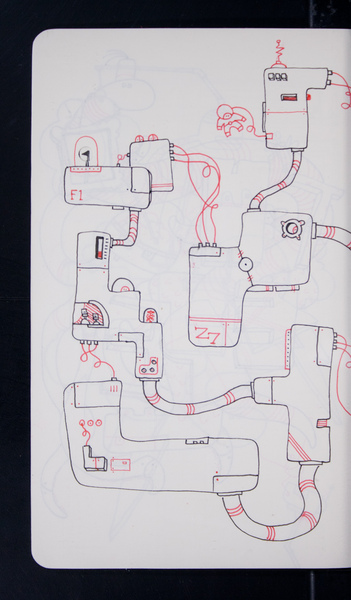 F1
Z7